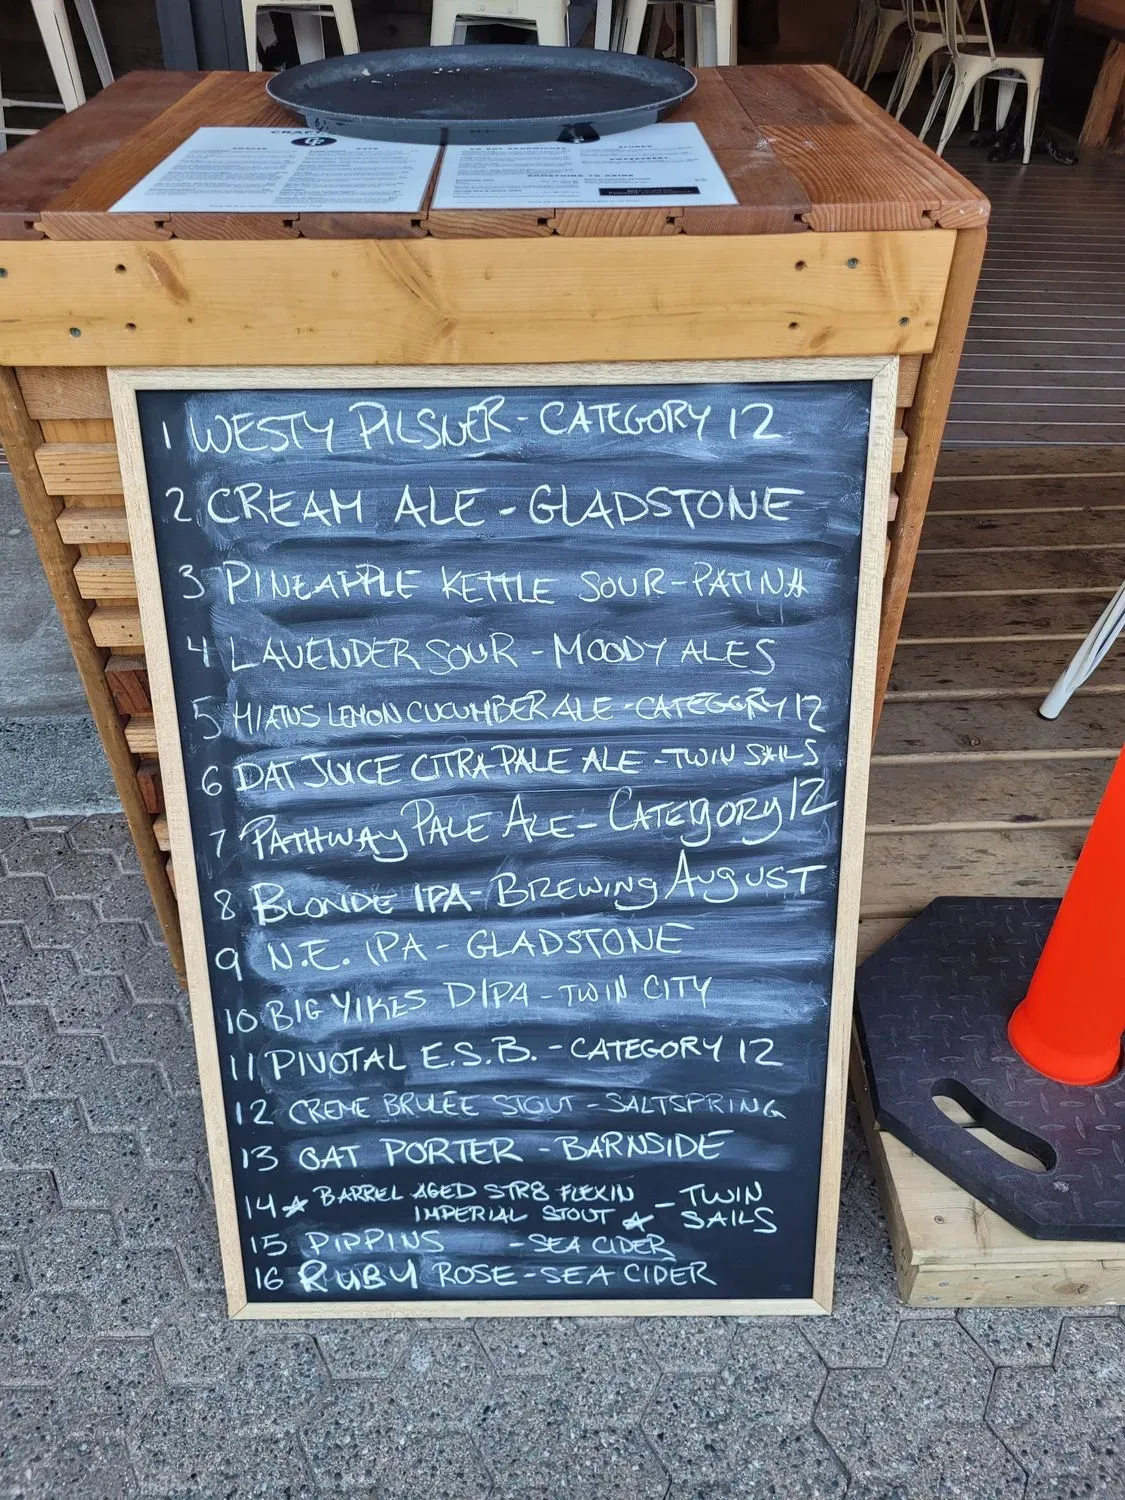 CRAFT
SOMETHING TO DRINK
1 WESTY PILSNER - CATEGORY 12
2 CREAM ALE - GLADSTONE
3 PINEAPPLE KETTLE SOUR - PATINA
4 LAVENDER SOUR - MOODY ALES
5 HIATUS LEMON CUCUMBER ALE - CATEGORY 12
6 DAT JUICE CITRA PALE ALE - TWIN SAILS
7 PATHWAY PALE ALE - CATEGORY 12
8 BLONDE IPA - BREWING AUGUST
9 N.E. IPA - GLADSTONE
10 BIG YIKES DIPA - TWIN CITY
11 PIVOTAL E.S.B. - CATEGORY 12
12 CREME BRULÉE STOUT - SALTSPRING
13 OAT PORTER - BARNSIDE
14 ☆ BARREL AGED STR8 FLEXIN - TWIN
IMPERIAL STOUT ☆ SAILS
15 PIPPINS - SEA CIDER
16 RUBY ROSE - SEA CIDER